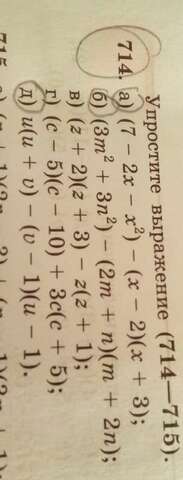 Упростите выражение (714—715).
714. а) (7 − 2x − x²) − (x − 2)(x + 3);
б) (3m² + 3n²) − (2m + n)(m + 2n);
в) (z + 2)(z + 3) − z(z + 1);
г) (c − 5)(c − 10) + 3c(c + 5);
д) u(u + v) − (v − 1)(u − 1).